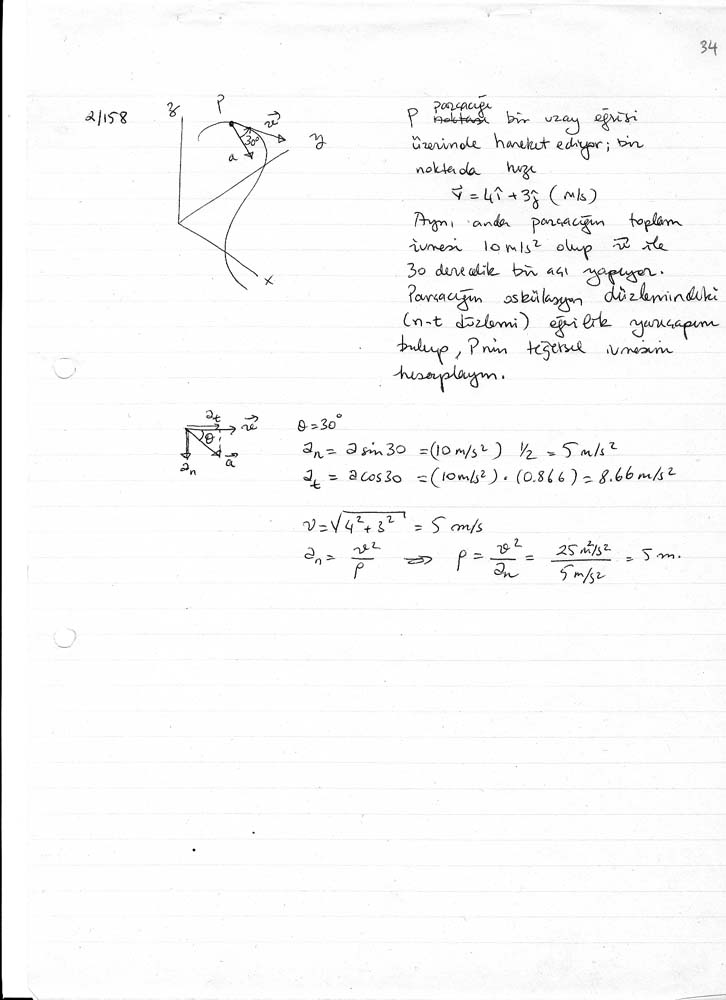 34
2/158
z
P
v⃗
y
30°
a
x
parçacığı
P noktası bir uzay eğrisi
üzerinde hareket ediyor; bir
noktada hızı
v⃗ = 4î + 3ĵ (m/s)
Aynı anda parçacığın toplam
ivmesi 10 m/s² olup v⃗ ile
30 derecelik bir açı yapıyor.
Parçacığın oskülasyon düzlemindeki
(n-t düzlemi) eğrilik yarıçapını
bulup, P'nin teğetsel ivmesini
hesaplayın.
a_t
v⃗
θ
a_n
a⃗
θ = 30°
a_n = a sin 30 = (10 m/s²) 1/2 = 5 m/s²
a_t = a cos 30 = (10 m/s²) · (0.866) = 8.66 m/s²
v = √(4² + 3²) = 5 m/s
a_n = v²/ρ ⇒ ρ = v²/a_n = 25 m²/s² / 5 m/s² = 5 m.